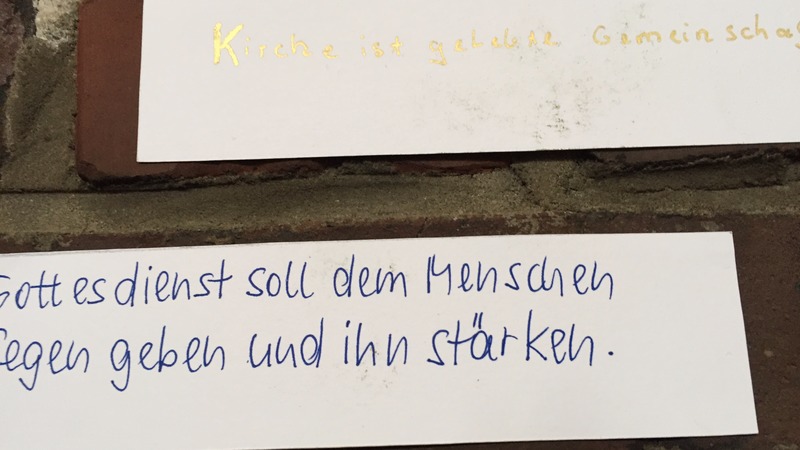 Kirche ist gelebte Gemeinschaf
Gottesdienst soll dem Menschen
Segen geben und ihn stärken.